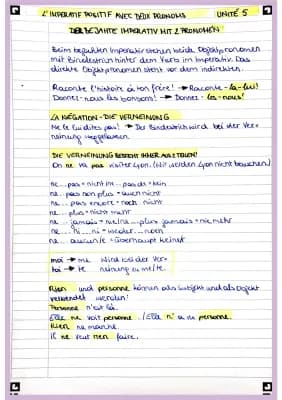 L'IMPERATIF POSITIF AVEC DEUX PRONOMS UNITÉ 5
DER BEJAHTE IMPERATIV MIT 2 PRONOMEN
Beim bejahten Imperativ stehen beide Objektpronomen
mit Bindestrich hinter dem Verb im Imperativ. Das
direkte Objektpronomen steht vor dem indirekten.
Raconte l'histoire à ton frère! → Raconte-la-lui!
Donnez-nous les bonbons! → Donnez-les-nous!
LA NÉGATION - DIE VERNEINUNG
Ne le lui dites pas! → Der Bindestrich wird bei der Ver-
neinung weggelassen.
DIE VERNEINUNG BESTEHT IMMER AUS 2 TEILEN!
On ne va pas visiter Lyon. (Wir werden Lyon nicht besuchen.)
ne...pas = nicht
ne...pas non plus = auch nicht
ne...pas encore = noch nicht
ne...plus = nicht mehr
ne...jamais = nie / ne...plus jamais = nie mehr
ne...ni...ni = weder...noch
ne...aucun/e = überhaupt keine/r
moi → me Wird bei der Ver-
toi → te neinung zu me/te.
Rien und personne können als Subjekt und als Objekt
verwendet werden!
Personne n'est là.
Elle ne voit personne. / Elle n' a vu personne.
Rien ne marche.
Il ne veut rien faire.